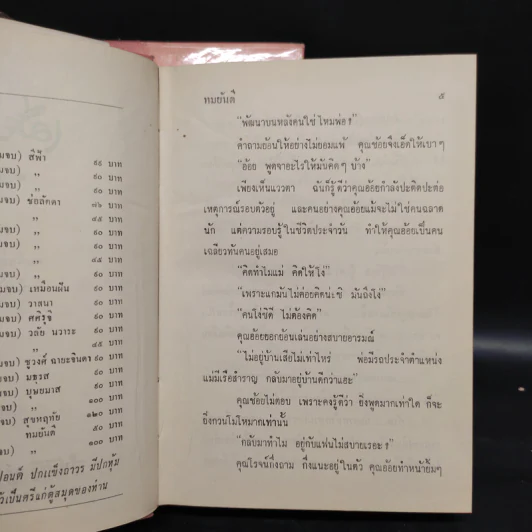 มจบ) สีฟ้า ๙๕ บาท
มจบ) ,, ๙๐ บาท
,, ๙๐ บาท
มจบ) ช่อลัดดา ๗๖ บาท
,, ๔๕ บาท
มจบ) ,, ๙๐ บาท
มจบ) ,, ๙๐ บาท
,, ๔๔ บาท
มจบ) เหมือนฝัน ๙๐ บาท
มจบ) วาสนา ๙๐ บาท
มจบ) ศศิรุจิ ๙๐ บาท
มจบ) วลัย นวาระ ๙๐ บาท
,, ๔๕ บาท
มจบ) ชูวงศ์ ฉายะจินดา ๙๐ บาท
มจบ) มธุรส ๙๐ บาท
มจบ) บุษยมาส ๙๐ บาท
มจบ) ,, ๑๐๐ บาท
มจบ) สุขหฤทัย ๑๒๐ บาท
ทมยันตี ๙๐ บาท
มจบ) ,, ๑๐๐ บาท
ปอนด์ ปกแข็งถาวร มีปกหุ้ม
เป็นศรีแก่ตู้สมุดของท่าน
ทมยันตี ๕
"พัฒนาบนหลังคนใช่ไหมพ่อ?"
คำถามย้อนให้อย่างไม่ยอมแพ้ คุณช้อยจึงเอ็ดให้เบาๆ
"อ้อย พูดจาอะไรให้มันคิดๆ บ้าง"
เพียงเห็นแววตา ฉันก็รู้ดีว่าคุณอ้อยกำลังปะติดปะต่อ
เหตุการณ์รอบตัวอยู่ และคนอย่างคุณอ้อยแม้จะไม่ใช่คนฉลาด
นัก แต่ความรอบรู้ในชีวิตประจำวัน ทำให้คุณอ้อยเป็นคน
เฉลียวทันคนอยู่เสมอ
"คิดทำไมแม่ คิดให้โง่"
"เพราะแกมันไม่ค่อยคิดน่ะซิ มันถึงโง่"
"คนโง่ซิดี ไม่ต้องคิด"
คุณอ้อยยอกย้อนเล่นอย่างสบายอารมณ์
"ไม่อยู่บ้านเสียไม่เท่าไหร่ พ่อมีรถประจำตำแหน่ง
แม่มีเรือสำราญ กลับมาอยู่บ้านดีกว่าแฮะ"
คุณช้อยไม่ตอบ เพราะคงรู้ดีว่า ยิ่งพูดมากเท่าใด ก็จะ
ยิ่งกวนโมโหมากเท่านั้น
"กลับมาทำไม อยู่กับแฟนไม่สบายเรอะ?"
คุณโรจน์ถึงถาม ทั้งแนะอยู่ในตัว คุณอ้อยทำหน้ายิ้มๆ